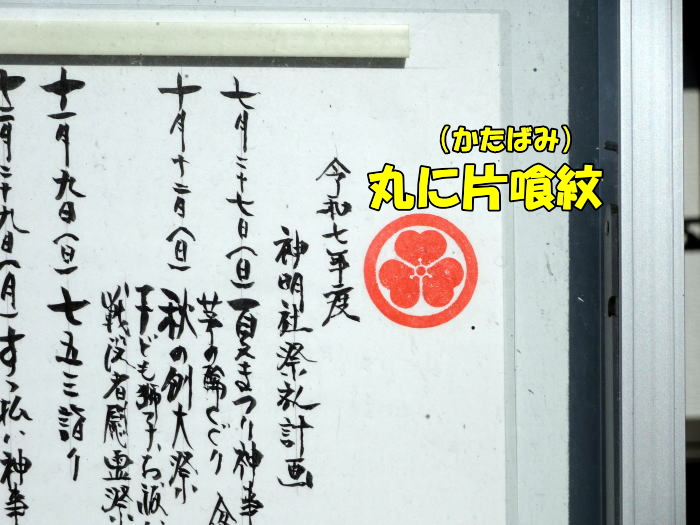 (かたばみ)
丸に片喰紋
令和七年度
神明社祭礼計画
七月二十七日(日)
夏まつり神事
茅の輪くぐり
十月十二日(日)
秋の例大祭
子ども獅子、お祓い
戦没者慰霊祭
十一月九日(日)七五三詣り
十二月二十九日(月)すゝ払い神事